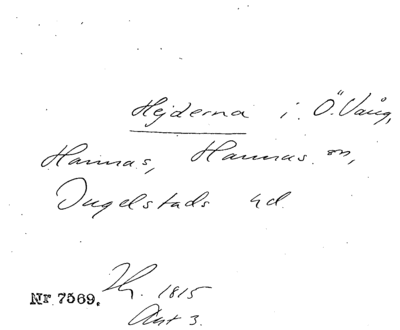 Hejderna i Ö. Vång,
Hannas, Hannas sn,
Ingelstads hd.
1815
Nr 7569.
Akt 3.